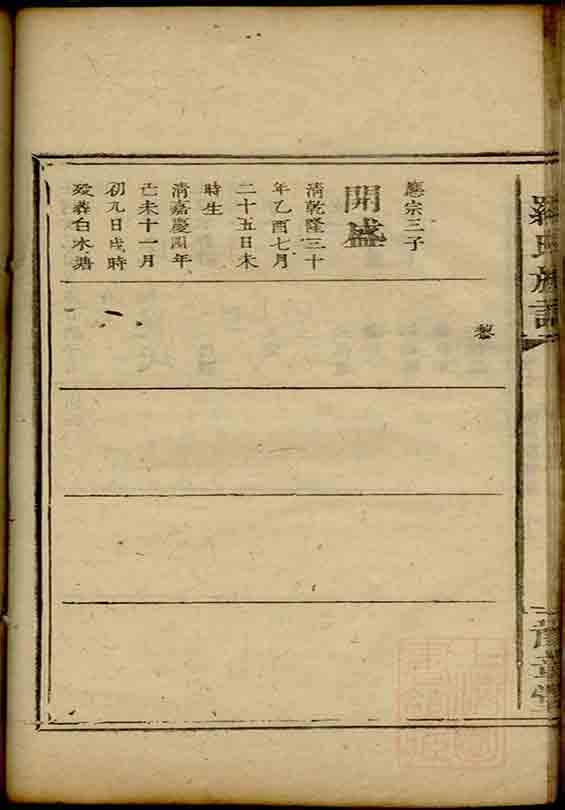 羅氏族譜
葬
應宗三子
開盛
清乾隆三十
年乙酉七月
二十五日未
時生
清嘉慶四年
己未十一月
初九日戌時
歿葬白水塘